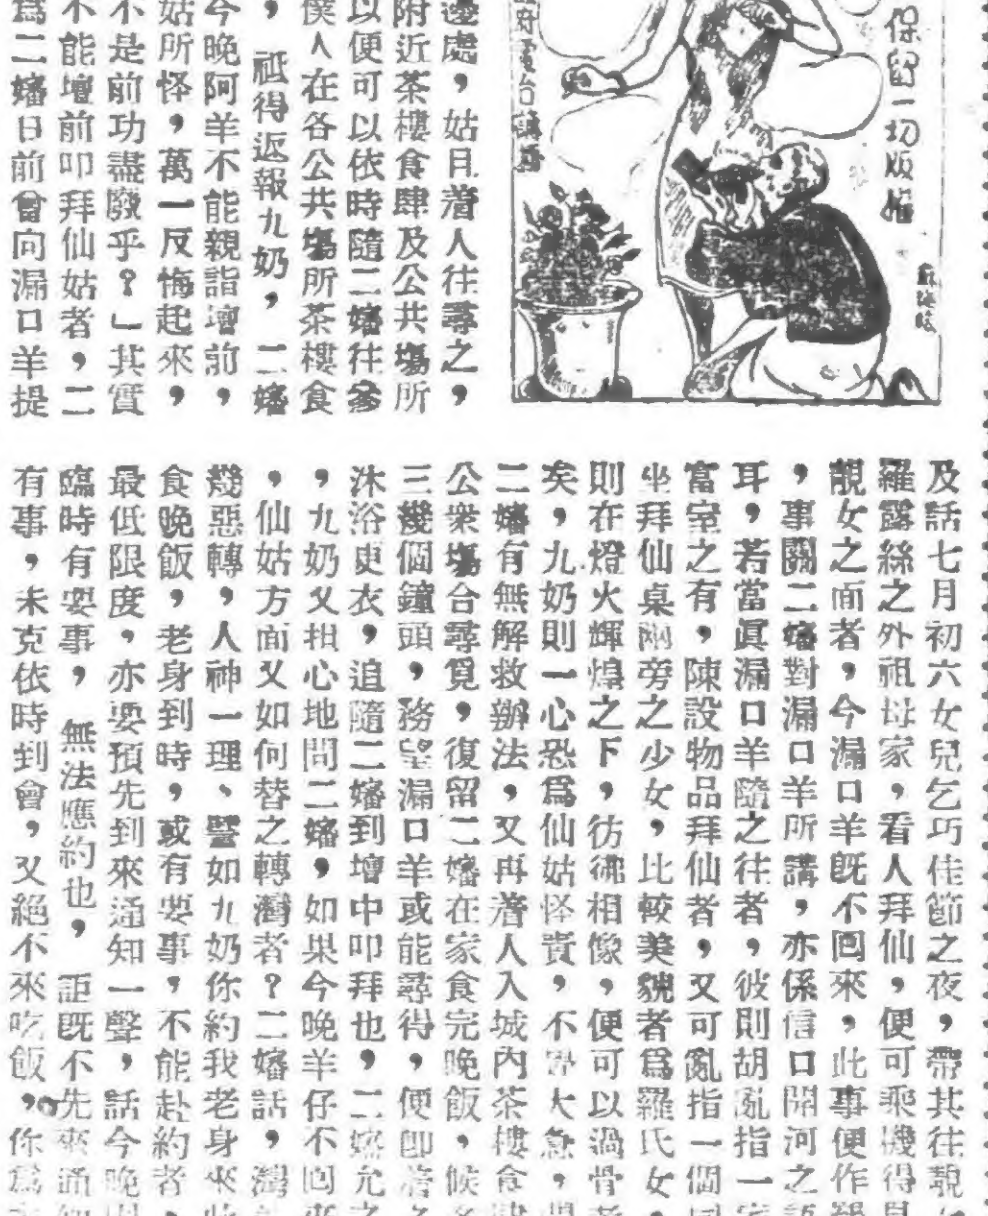 保留一切版權
邊處，姑且着人往尋之，
附近茶樓食肆及公共塲所
以便可以依時隨二嬸往參
僕人在各公共塲所茶樓食
，祗得返報九奶，二嬸
今晚阿羊不能親詣壇前，
姑所怪，萬一反悔起來，
不是前功盡廢乎？」其實
不能壇前叩拜仙姑者，二
爲二嬸日前曾向漏口羊提
及話七月初六女兒乞巧佳節之夜，帶其往靚
羅露絲之外祖母家，看人拜仙，便可乘機得見
靚女之面者，今漏口羊旣不回來，此事便作
，事關二嬸對漏口羊所講，亦係信口開河之
耳，若當眞漏口羊隨之往者，彼則胡亂指一
富室之有，陳設物品拜仙者，又可亂指一個
坐拜仙桌兩旁之少女，比較美貌者爲羅氏女，
則在燈火輝煌之下，彷彿相像，便可以過骨
矣，九奶則一心恐爲仙姑怪責，不 大急，
二嬸有無解救辦法，又再着人入城內茶樓食
公衆塲合尋覓，復留二嬸在家食完晚飯，候
三幾個鐘頭，務望漏口羊或能尋得，便卽着
沐浴更衣，追隨二嬸到壇中叩拜也，二嬸允之
，九奶又担心地問二嬸，如果今晚羊仔不回來
，仙姑方面又如何替之轉灣者？二嬸話，灣
幾惡轉，人神一理、譬如九奶你約我老身來
食晚飯，老身到時，或有要事，不能赴約者，
最低限度，亦要預先到來通知一聲，話今晚
臨時有要事，無法應約也，詎旣不先來通
有事，未克依時到會，又絕不來吃飯，你爲